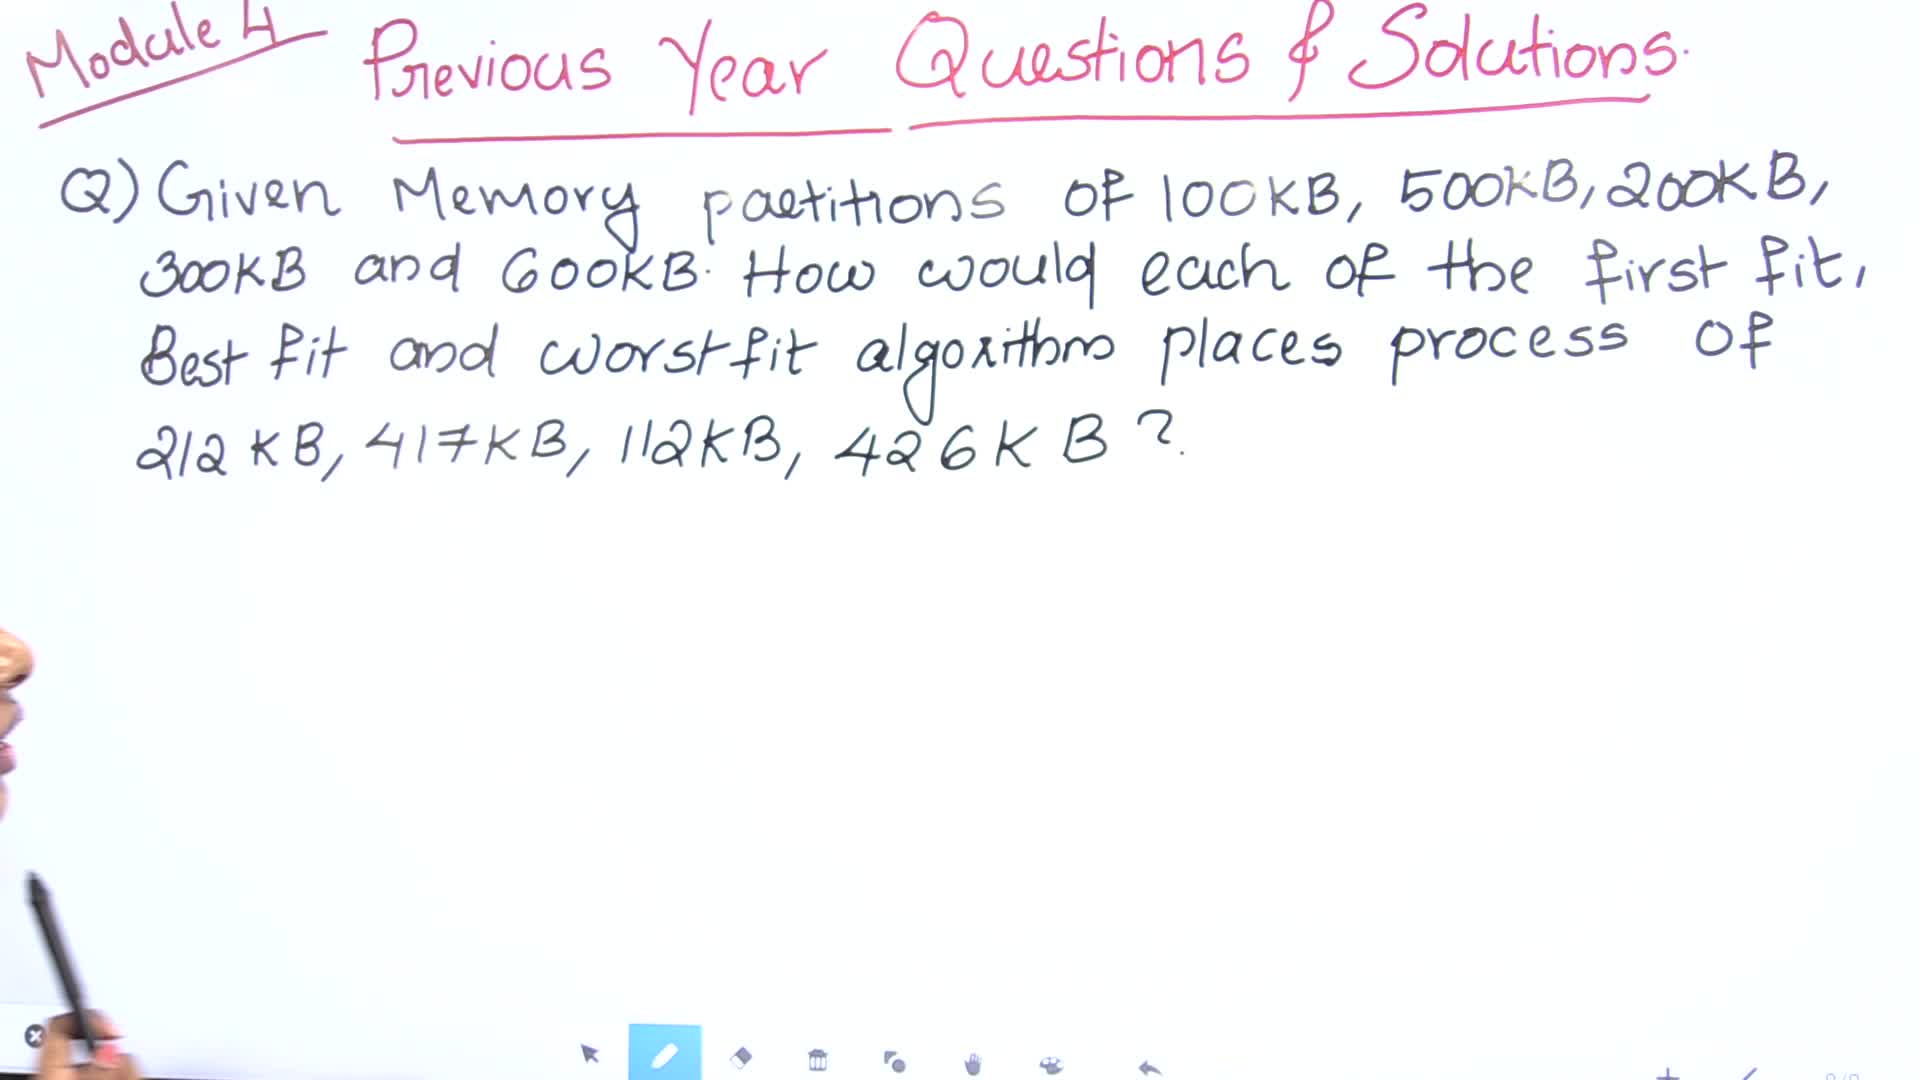 Module 4
Previous Year Questions & Solutions.
Q) Given Memory partitions of 100KB, 500KB, 200KB,
300KB and 600KB. How would each of the first fit,
Best fit and worst fit algorithm places process of
212 KB, 417KB, 112KB, 426K B ?